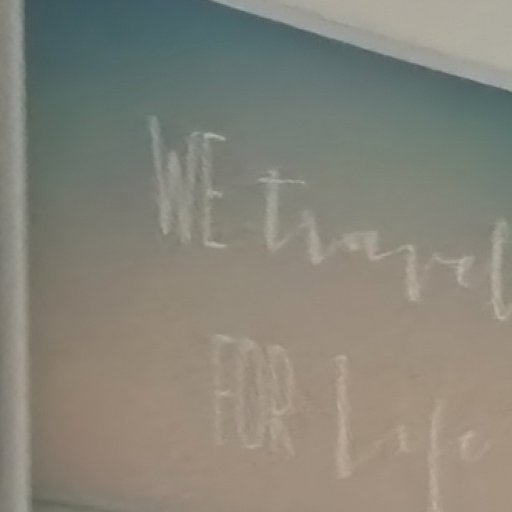 WE travel
FOR Life